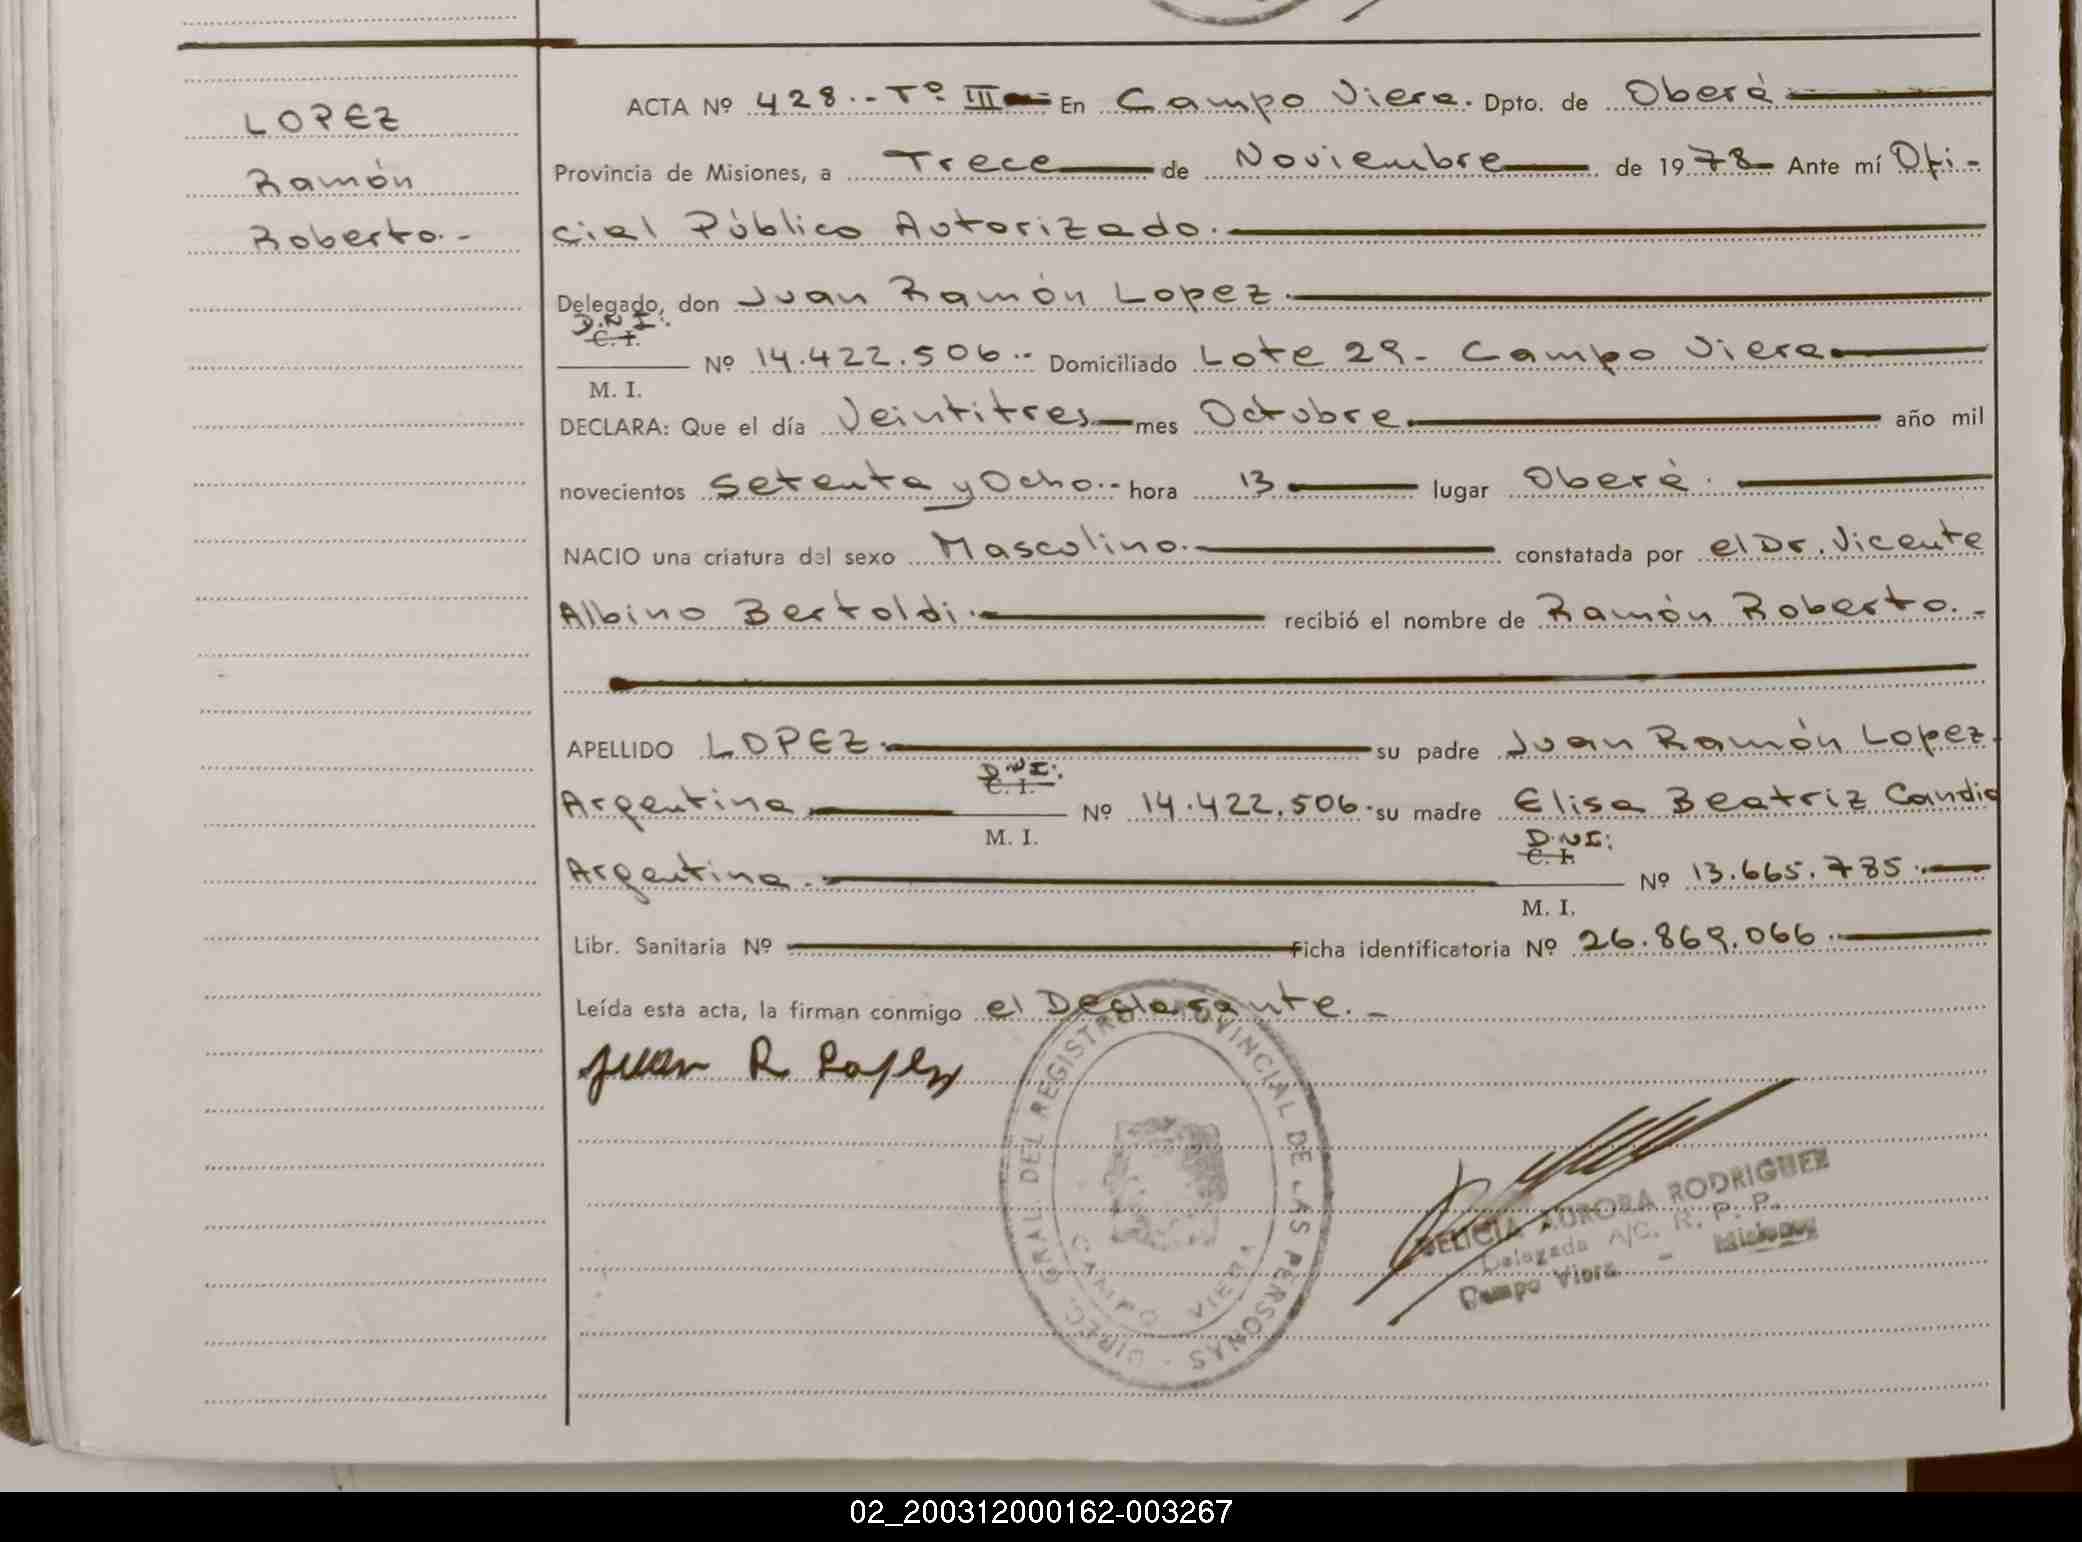 LOPEZ
Ramón
Roberto.-
ACTA Nº 428.- Tº III En Campo Viera. Dpto. de Oberá
Provincia de Misiones, a Trece de Noviembre de 1978 Ante mí Ofi-
cial Público Autorizado.
Delegado, don Juan Ramón Lopez.
D.N.I:
C. I.
Nº 14.422.506.- Domiciliado Lote 29- Campo Viera
M. I.
DECLARA: Que el día Veintitres mes Octubre año mil
novecientos Setenta y Ocho.- hora 13 lugar Oberá.
NACIO una criatura del sexo Masculino. constatada por el Dr. Vicente
Albino Bertoldi. recibió el nombre de Ramón Roberto.-
APELLIDO LOPEZ. su padre Juan Ramón Lopez.
D.N.I:
C. I.
Argentina Nº 14.422.506. su madre Elisa Beatriz Candia
M. I.
D.N.I:
C. I.
Argentina. Nº 13.665.785.
M. I.
Libr. Sanitaria Nº Ficha identificatoria Nº 26.869.066.
Leída esta acta, la firman conmigo el Declarante.-
Juan R Lopez
DIREC. GRAL. DEL REGISTRO PROVINCIAL DE LAS PERSONAS -
CAMPO VIERA
DELICIA AURORA RODRIGUEZ
Delegada A/C. R. P. P.
Campo Viera - Misiones
02_200312000162-003267